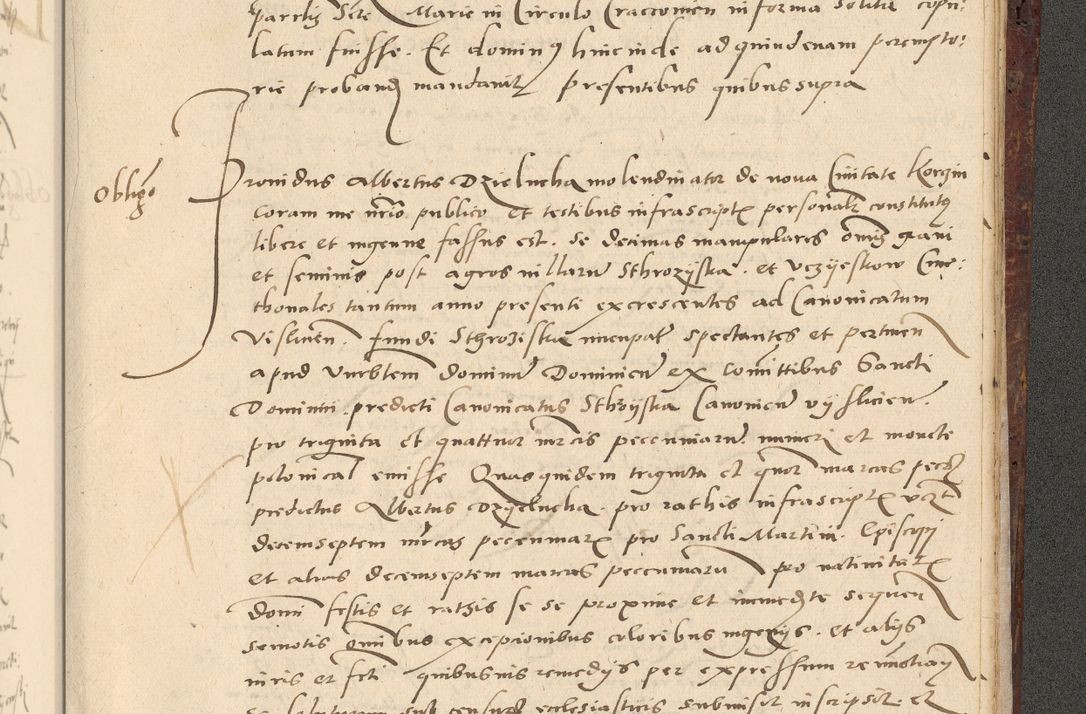 parrchis Ste Marie in Circulo Craccovien in forma solita copu:
latum fuisse. Et dominus hincinde ad quindenam perempto:
rie proband mandavit presentibus quibus supra
Obligo
Providus Albertus Dzielucha molendinator de nova Civitate Korczin
coram me nrio publico et testibus infrascriptis personalr constitutus
libere et ingenue fassus est. Se decimas manipulares omnis grani
et seminis post agros villarum Sthrozyska. et Uczyeskow Cme:
thonales tantum anno presenti excrescentes ad Canonicatum
Vislicien. fundi Sthroziskae nuncupat spectantes et pertinen
apud Venrblem dominum Dominicum ex comittibus Sancti
Dominici predicti Canonicatus Sthrozyska Canonicum vyslicien.
pro triginta et quattuor mrcis pecuniarum numeri et monete
polonical emisse Quasquidem triginta et quor marcas pecz
predictus Albertus Dzyelucha. pro rathis infrascriptis vczt
decemseptem mrcas pecuniarx pro Sancti Martini. Episcopi
et alias decemseptem marcas pecuniarum pro nativitatx
domi festis et rathis se se proxime et immedte sequen
semotis omibus excepcionibus coloribus ingenys. et alys
iuris et fcti quibusvis remedys per expressum renunctiacy
se soluturum sub censuris ecclesiasticis submisit inscripsit et